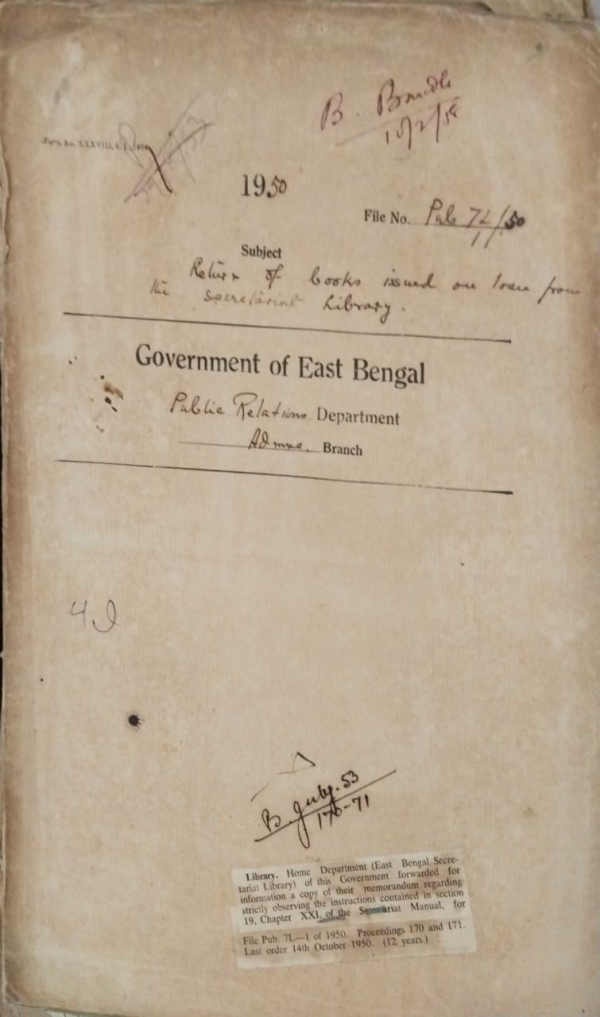 B. Bundle
1950
File No. Pub 7L/50
1
Subject
Return of books issued on loan from
the secretariat Library.
Government of East Bengal
Public Relations Department
Admn. Branch
B. July. 53
170-71
Library. Home Department (East Bengal Secre-
tariat Library) of this Government forwarded for
information a copy of their memorandum regarding
strictly observing the instructions contained in section
19, Chapter XXI, of the Secretariat Manual, for
File Pub. 7L—1 of 1950. Proceedings 170 and 171.
Last order 14th October 1950. (12 years.)